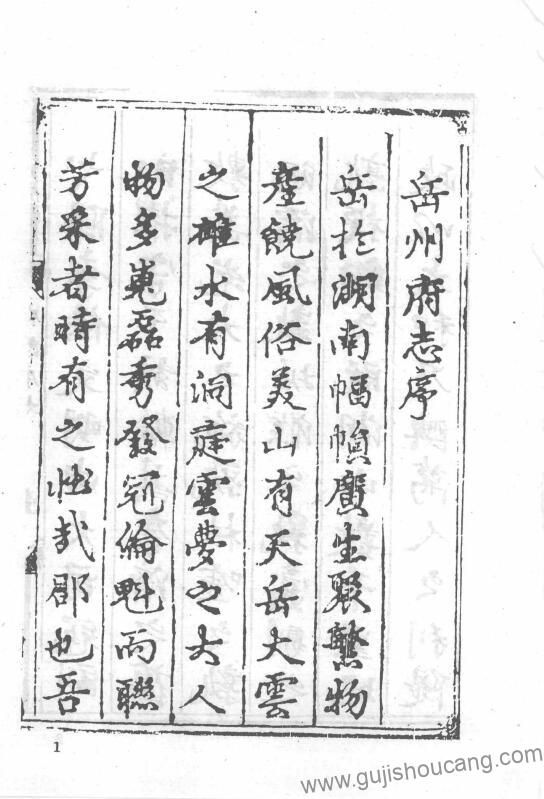 岳州府志序
岳於湖南幅幀廣生聚繁物
產饒風俗美山有天岳大雲
之雄水有洞庭雲夢之大人
物多嵬磊秀發冠倫魁而聯
芳采者時有之壯哉郡也吾
1
www.gujishoucang.com